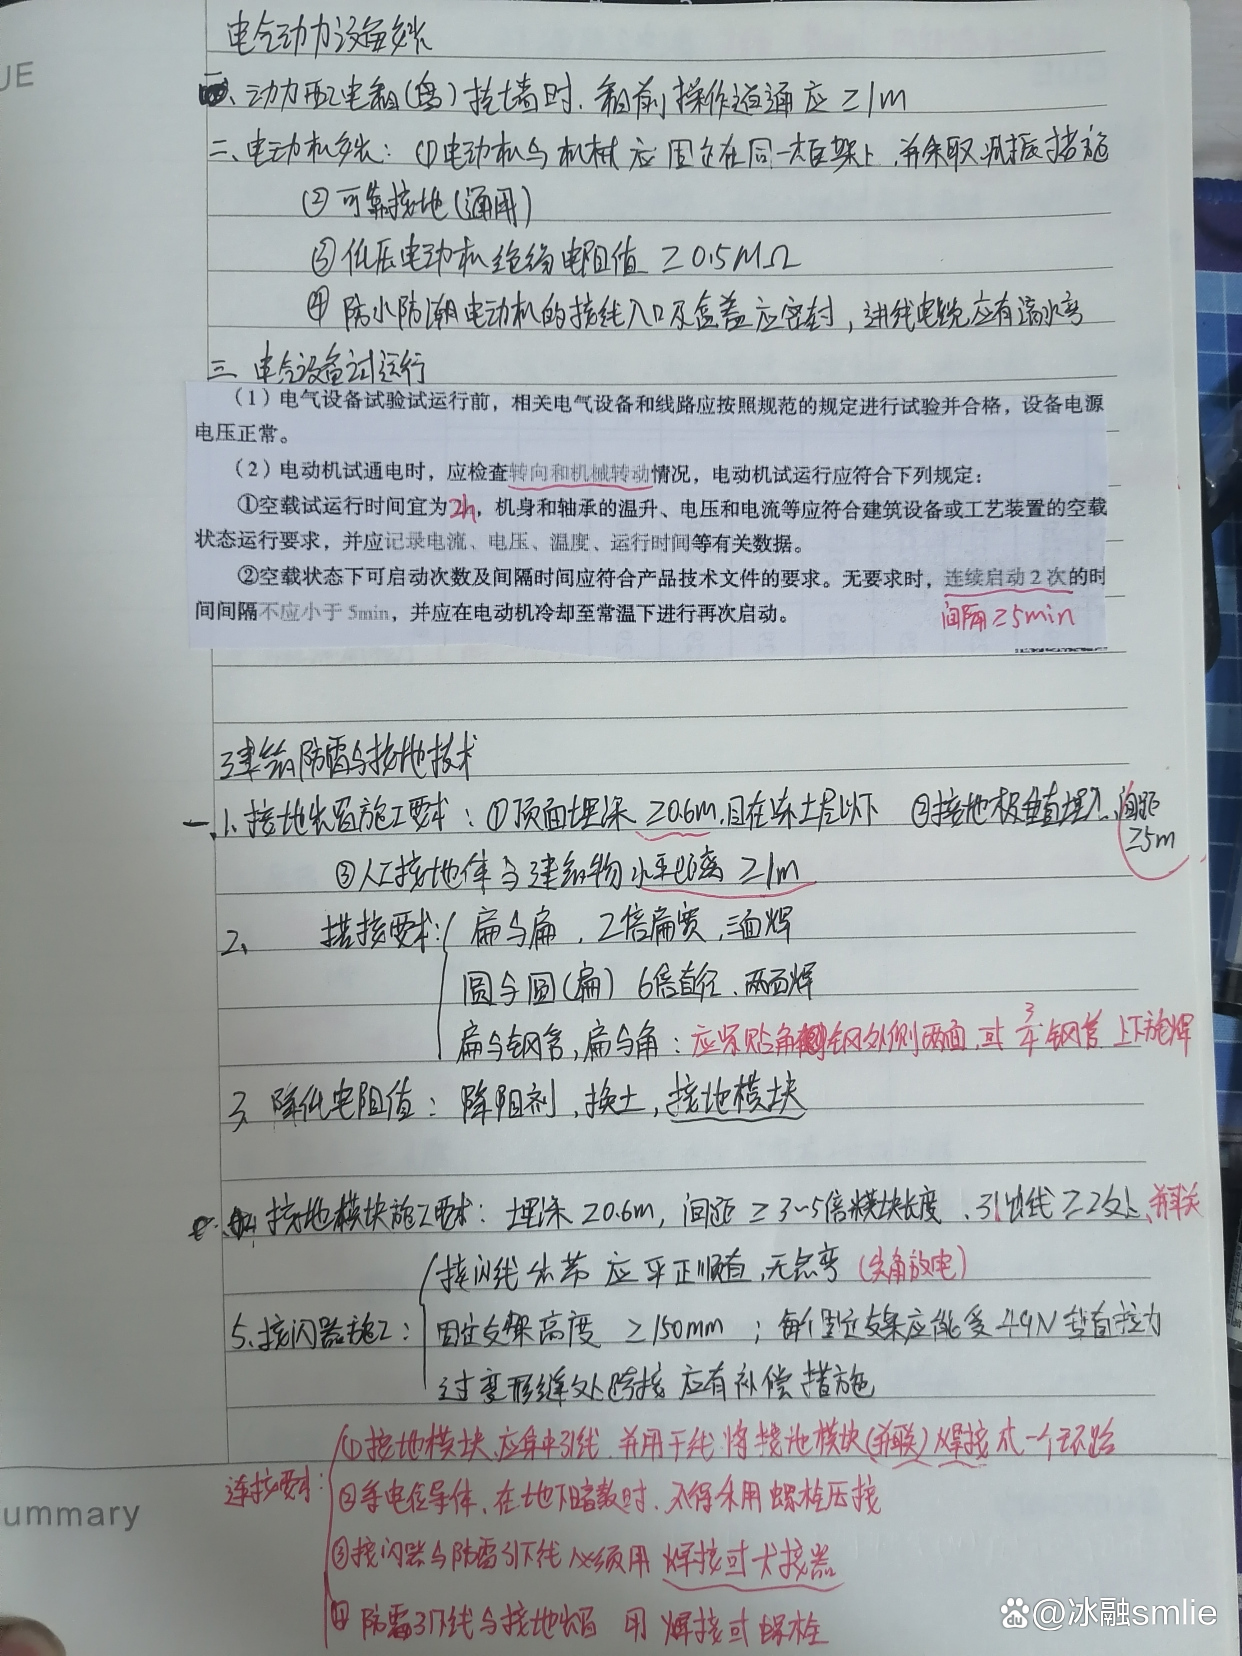 UE
电气动力设备安装
一、动力配电箱(盘)挂墙时、箱前操作通道应≥1m
二、电动机安装：①电动机与机械应固定在同一框架上，并采取减振措施
②可靠接地(通用)
③低压电动机绝缘电阻值≥0.5MΩ
④防水防潮电动机的接线入口及盒盖应密封，进线电缆应有滴水弯
三、电气设备试运行
（1）电气设备试验试运行前，相关电气设备和线路应按照规范的规定进行试验并合格，设备电源
电压正常。
（2）电动机试通电时，应检查转向和机械转动情况，电动机试运行应符合下列规定：
①空载试运行时间宜为2h，机身和轴承的温升、电压和电流等应符合建筑设备或工艺装置的空载
状态运行要求，并应记录电流、电压、温度、运行时间等有关数据。
②空载状态下可启动次数及间隔时间应符合产品技术文件的要求。无要求时，连续启动2次的时
间间隔不应小于5min，并应在电动机冷却至常温下进行再次启动。
间隔≥5min
建筑防雷与接地技术
一、1.接地装置施工要求：①顶面埋深≥0.6m,且在冻土层以下 ②接地极垂直埋入、间距
≥5m
③人工接地体与建筑物水平距离≥1m
2、搭接要求：扁与扁，2倍扁宽，三面焊
圆与圆(扁) 6倍直径、两面焊
扁与钢管，扁与角：应紧贴角钢外侧两面，或3/4钢管上下施焊
3、降低电阻值：降阻剂，换土，接地模块
接地模块施工要求：埋深≥0.6m，间距≥3~5倍模块长度、引出线≥2处、并联
接闪线和带应平正顺直，无急弯(尖角放电)
5.接闪器施工：固定支架高度≥150mm；每个固定支架应能承受49N垂直拉力
过变形缝处跨接应有补偿措施
①接地模块应集中引线，并用干线将接地模块(并联)焊接成一个环路
连接要求：②等电位导体，在地下暗敷时，不得采用螺栓压接
③接闪器与防雷引下线必须用焊接或卡接器
ummary
④防雷引下线与接地装置用焊接或螺栓
Bai du @冰融smlie